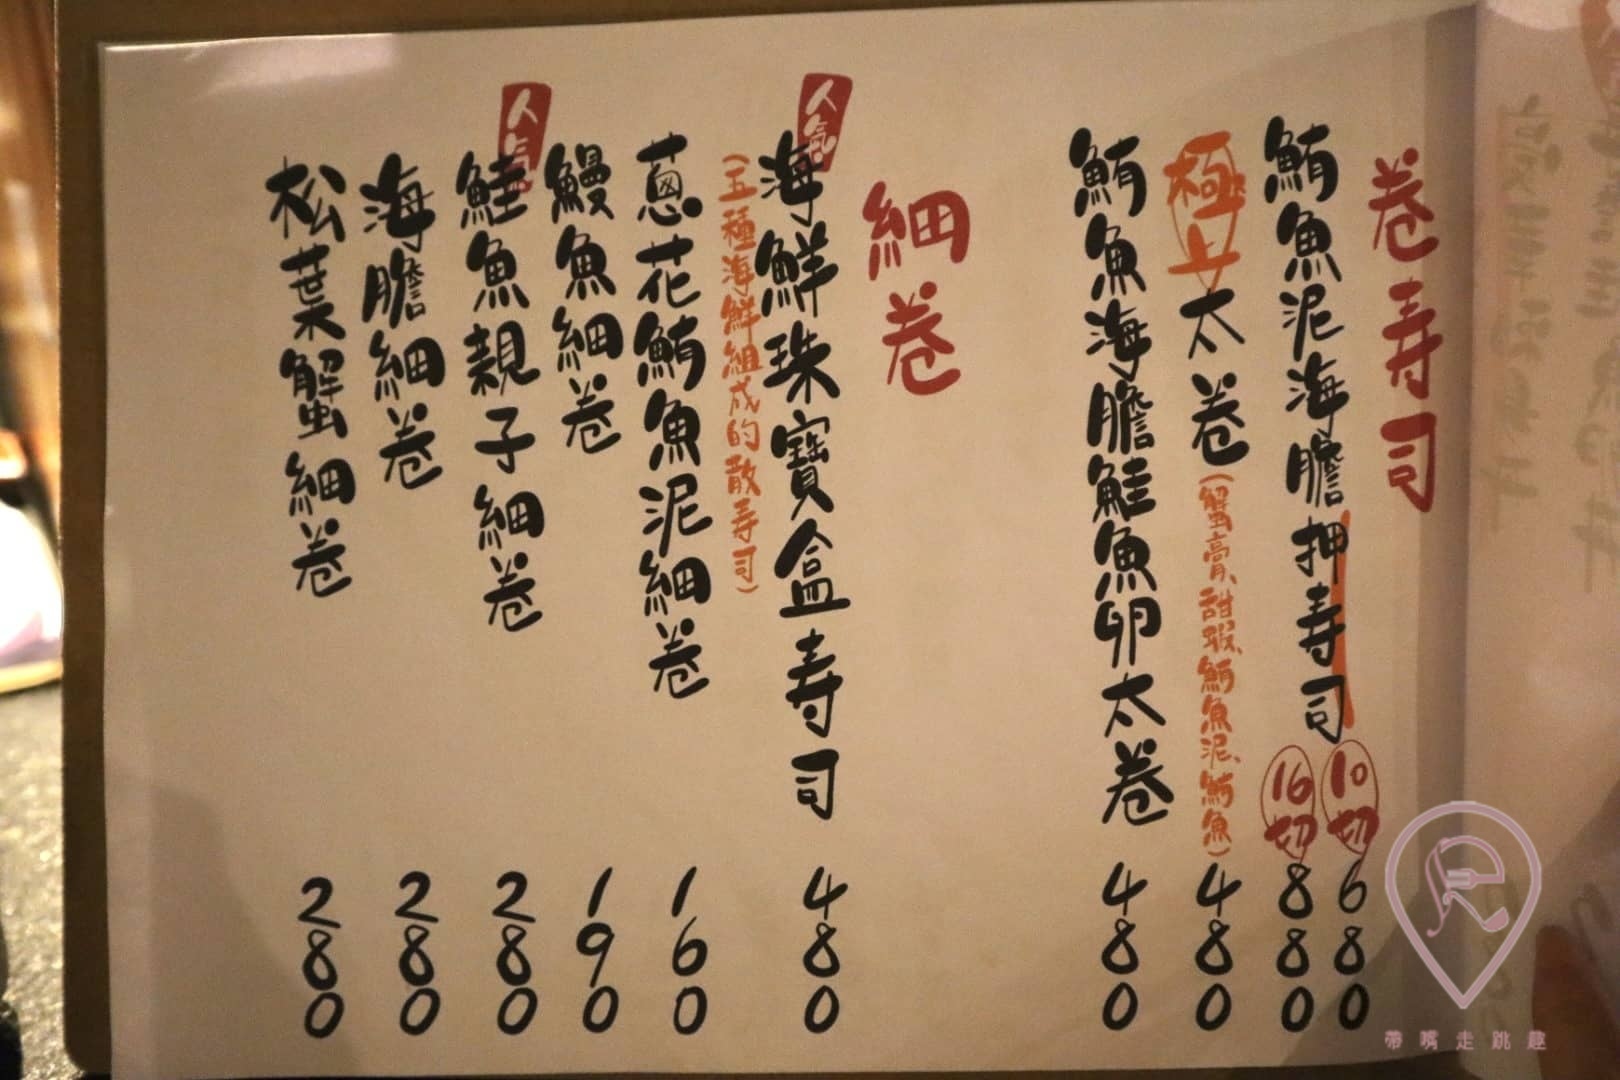 卷寿司
鮪魚泥海膽押寿司
10切 680
16切 880
極上太卷(蟹膏、甜蝦、鮪魚泥、鮪魚) 480
鮪魚海膽鮭魚卵太卷 480
細卷
人氣
海鮮珠寶盒寿司 480
(五種海鮮組成的散寿司)
蔥花鮪魚泥細卷 160
鰻魚細卷 190
人氣
鮭魚親子細卷 280
海膽細卷 280
松葉蟹細卷 280
帶嘴走跳趣